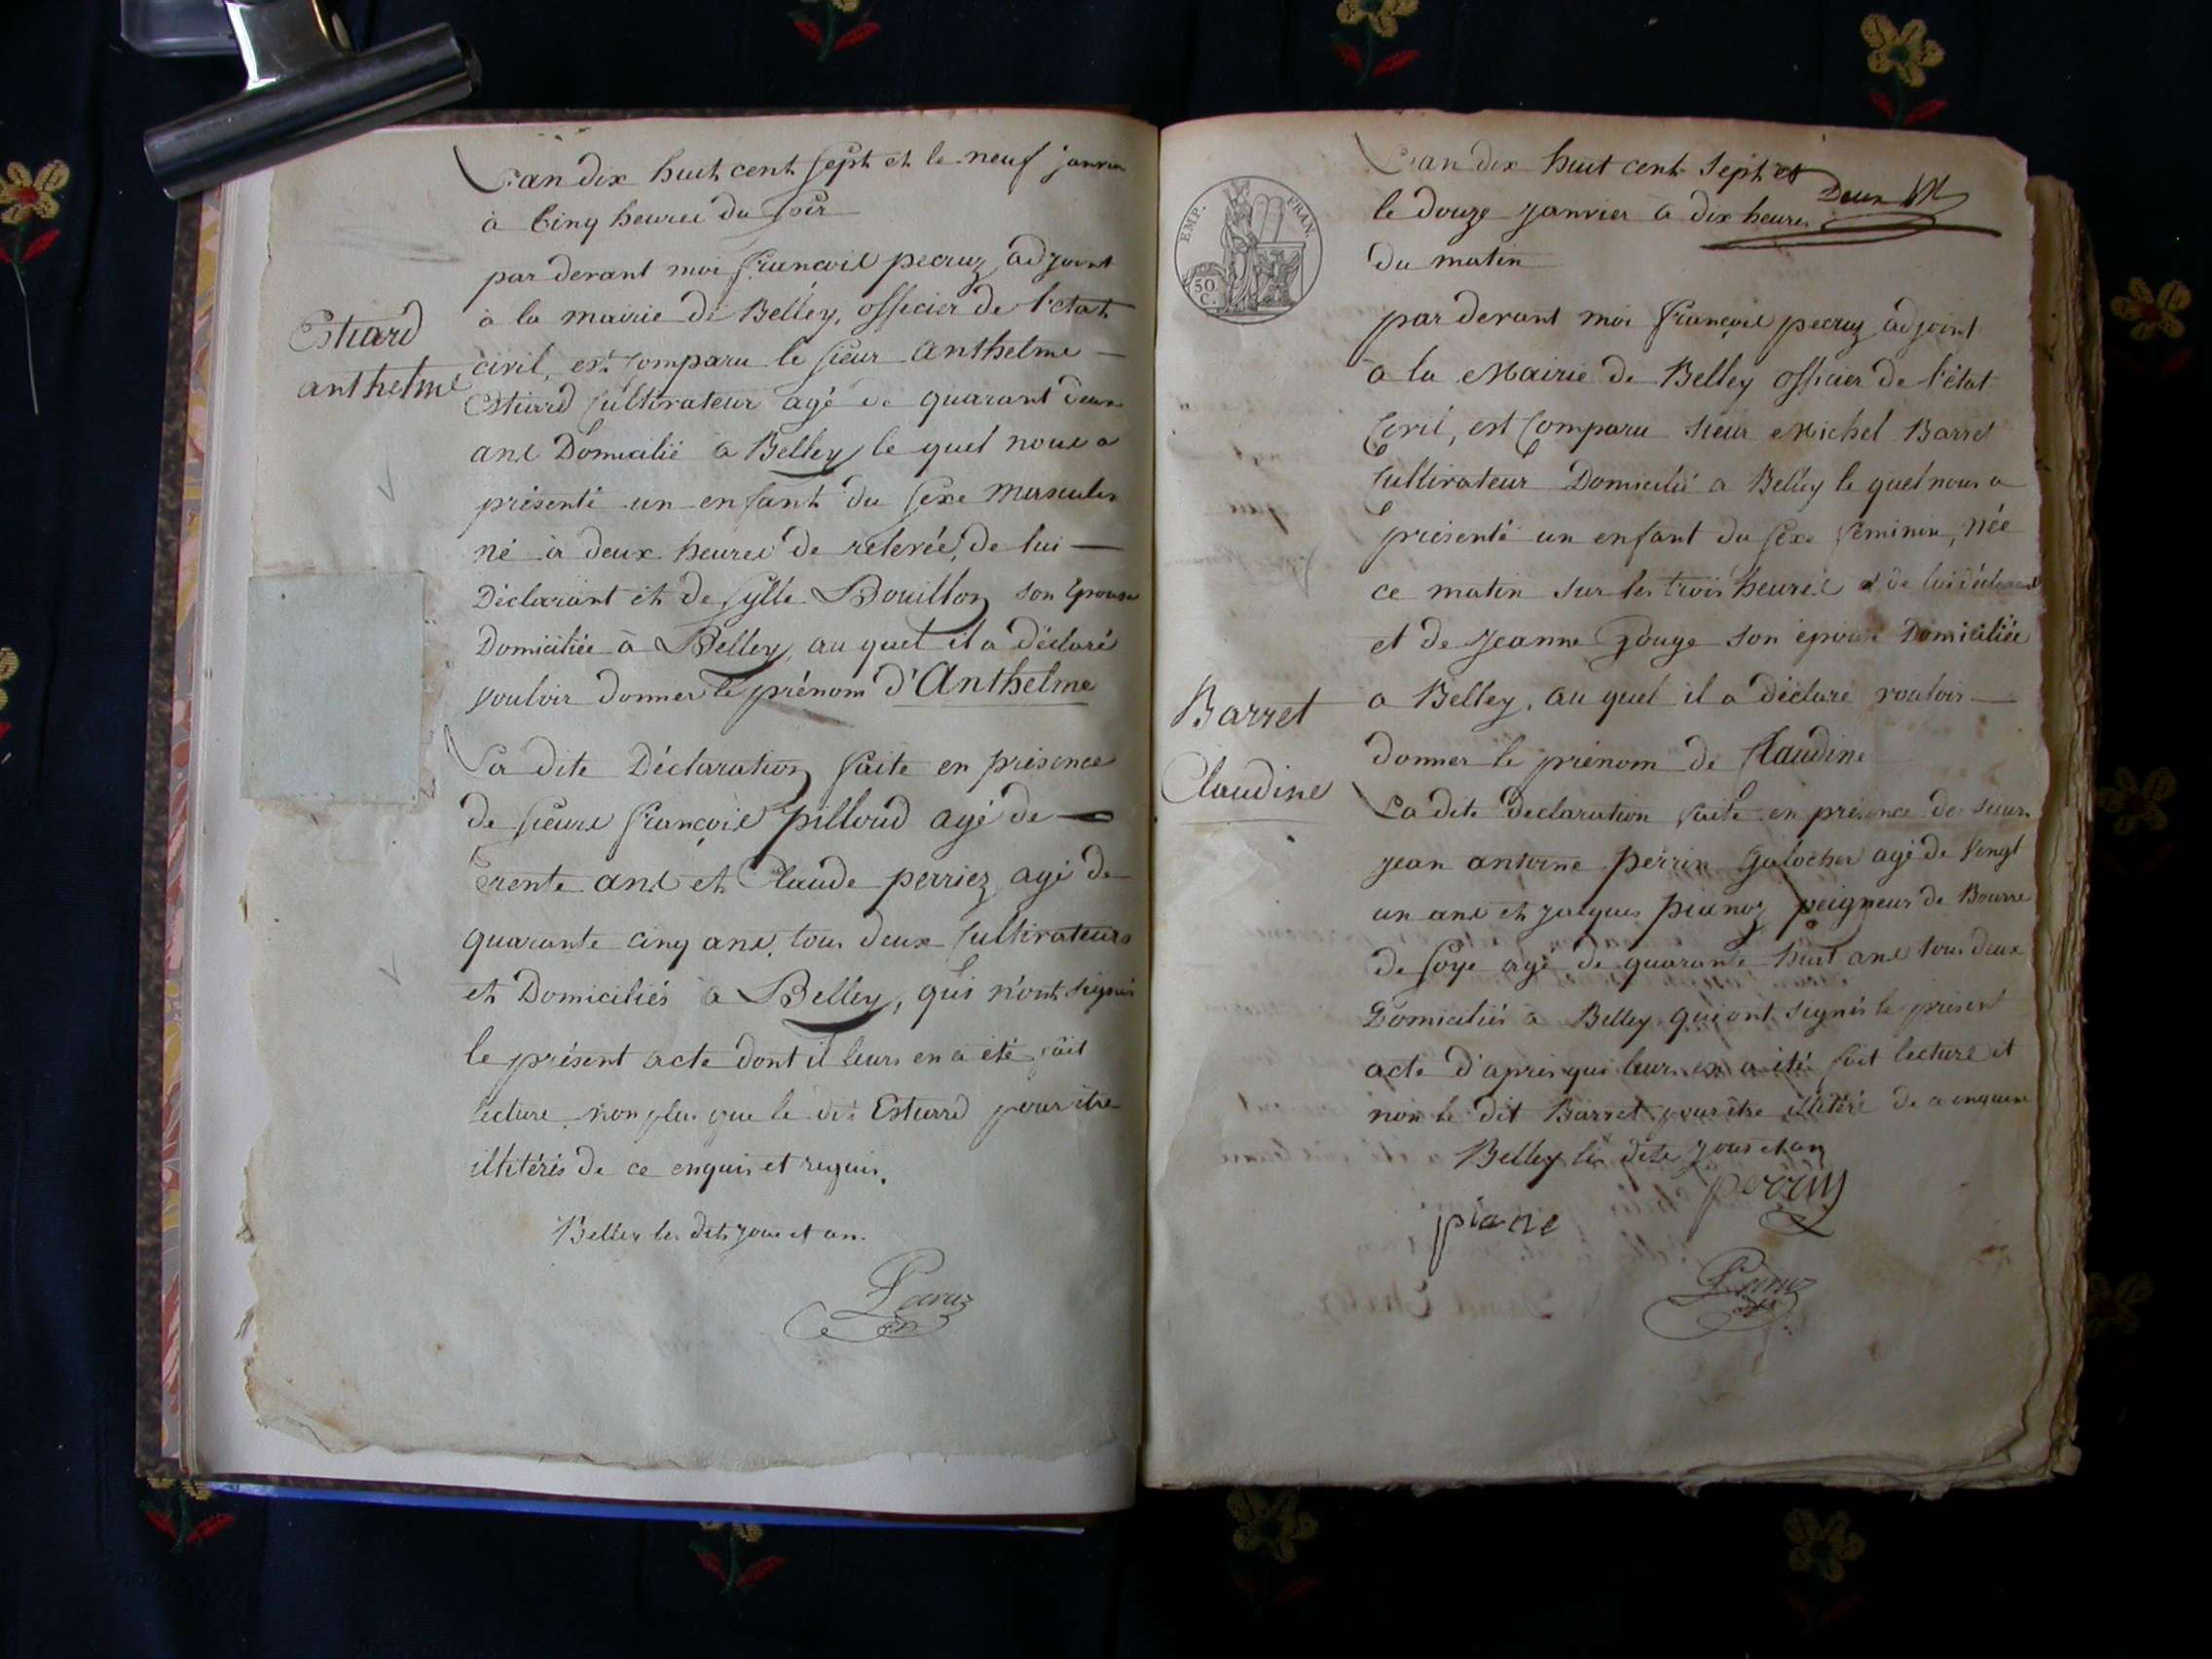 L'an dix huit cent sept et le neuf janvier
à Cinq heures du soir
par devant moi françois pecruz, adjoint
à la mairie de Belley, officier de l'état
Estiard
anthelme
civil, est comparu le sieur anthelme
Estiard Cultivateur agé de quarant deux
ans Domicilié à Belley le quel nous a
présenté un enfant du sexe masculin
né à deux heures de relevée, de lui
Déclarant et de Bouillon son épouse
Domiciliée à Belley, au quel il a déclaré
vouloir donner le prénom d'Anthelme
La dite Déclaration faite en présence
de sieurs françois pilloud agé de
trente ans et Claude perriez agé de
quarante cinq ans, tous deux Cultivateurs
et Domiciliés à Belley, qui n'ont signés
le présent acte dont il leurs en a été fait
lecture non plus que le dit Estiard pour être
illitérés de ce enquis et requis.
Belley les dits jour et an.
Pecruz
EMP. FRAN.
50 C.
L'an dix huit cent sept et
Deux
le douze janvier à dix heures
du matin
par devant moi françois pecruz adjoint
à la Mairie de Belley officier de l'état
Civil, est Comparu sieur Michel Barret
Cultivateur Domicilié a Belley le quel nous a
présenté un enfant du sexe féminin, née
ce matin sur les trois heures de lui déclarant
et de Jeanne Gouge son épouse Domiciliée
Barret
Claudine
a Belley, au quel il a déclaré vouloir
donner le prénom de Claudine
La dite déclaration faite en présence des sieurs
jean antoine perrin Galocher agé de vingt
un ans et jacques pianoz peigneur de Bourre
de soye agé de quarante huit ans tous deux
Domiciliés à Belley qui ont signés le présent
acte d'après qui leurs en a été fait lecture et
non le dit Barret pour être illitéré de a enquis
Belley les dits jour et an
perrin
piane
Pecruz